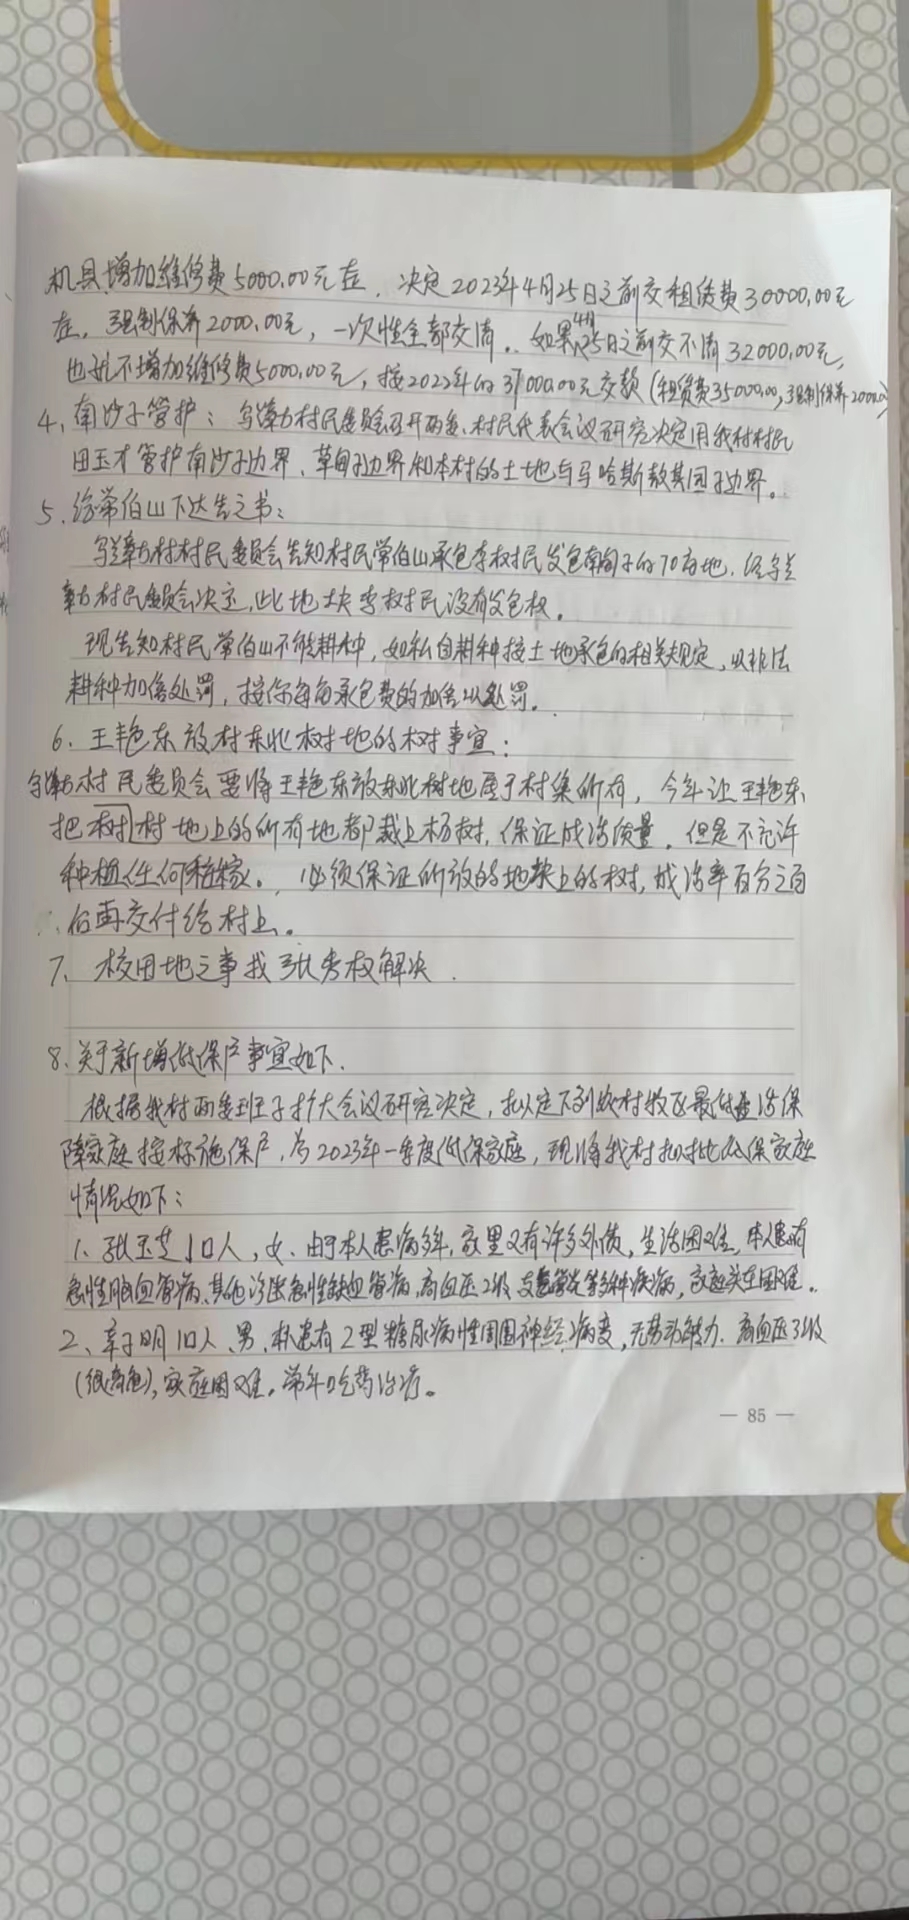 机具增加维修费5000.00元左, 决定2023年4月25日之前交租赁费30000.00元
左, 强制保养2000.00元, 一次性全部交清. 如果4月25日之前交不清32000.00元,
也就不增加维修费5000.00元, 按2022年的37000.00元交款(租赁费35000.00, 强制保养2000.00)
4、南沙子管护: 村民委员会召开两委、村民代表会议研究决定用我村村民
田玉才管护南沙子边界、草甸子边界和本村的土地与马哈斯敖其围子边界。
5、给常伯山下达告之书:
村村民委员会告知村民常伯山承包李树民发包南甸子的70亩地, 经
村民委员会决定, 此地块李树民没有发包权。
现告知村民常伯山不能耕种, 如私自耕种按土地承包的相关规定, 以非法
耕种加倍处罚, 按你每亩承包费的加倍以处罚。
6、王艳东放村东北树地的树事宜:
村民委员会要将王艳东放东北树地属于村集所有, 今年让王艳东
把树村地上的所有地都栽上杨树, 保证成活质量. 但是不允许
种植任何秸稼。必须保证所放的地块上的树, 成活率百分之百
后再交付给村上。
7、校田地之事找张秀权解决.
8、关于新增低保户事宜如下.
根据我村两委班子扩大会议研究决定, 拟定下列农村牧区最低生活保
障家庭按标施保户, 为2023年一季度低保家庭, 现将我村拟批低保家庭
情况如下:
1、张玉芝1口人, 女、由于本人患病多年, 家里又有许多外债, 生活困难, 本人患有
急性脑血管病、其他诊断急性缺血管病, 高血压2级等多种疾病, 家庭实在困难.
2、辛子明1口人、男、本人患有2型糖尿病性周围神经病变, 无劳动能力. 高血压3级
(很高危), 家庭困难. 常年吃药治疗。
— 85 —